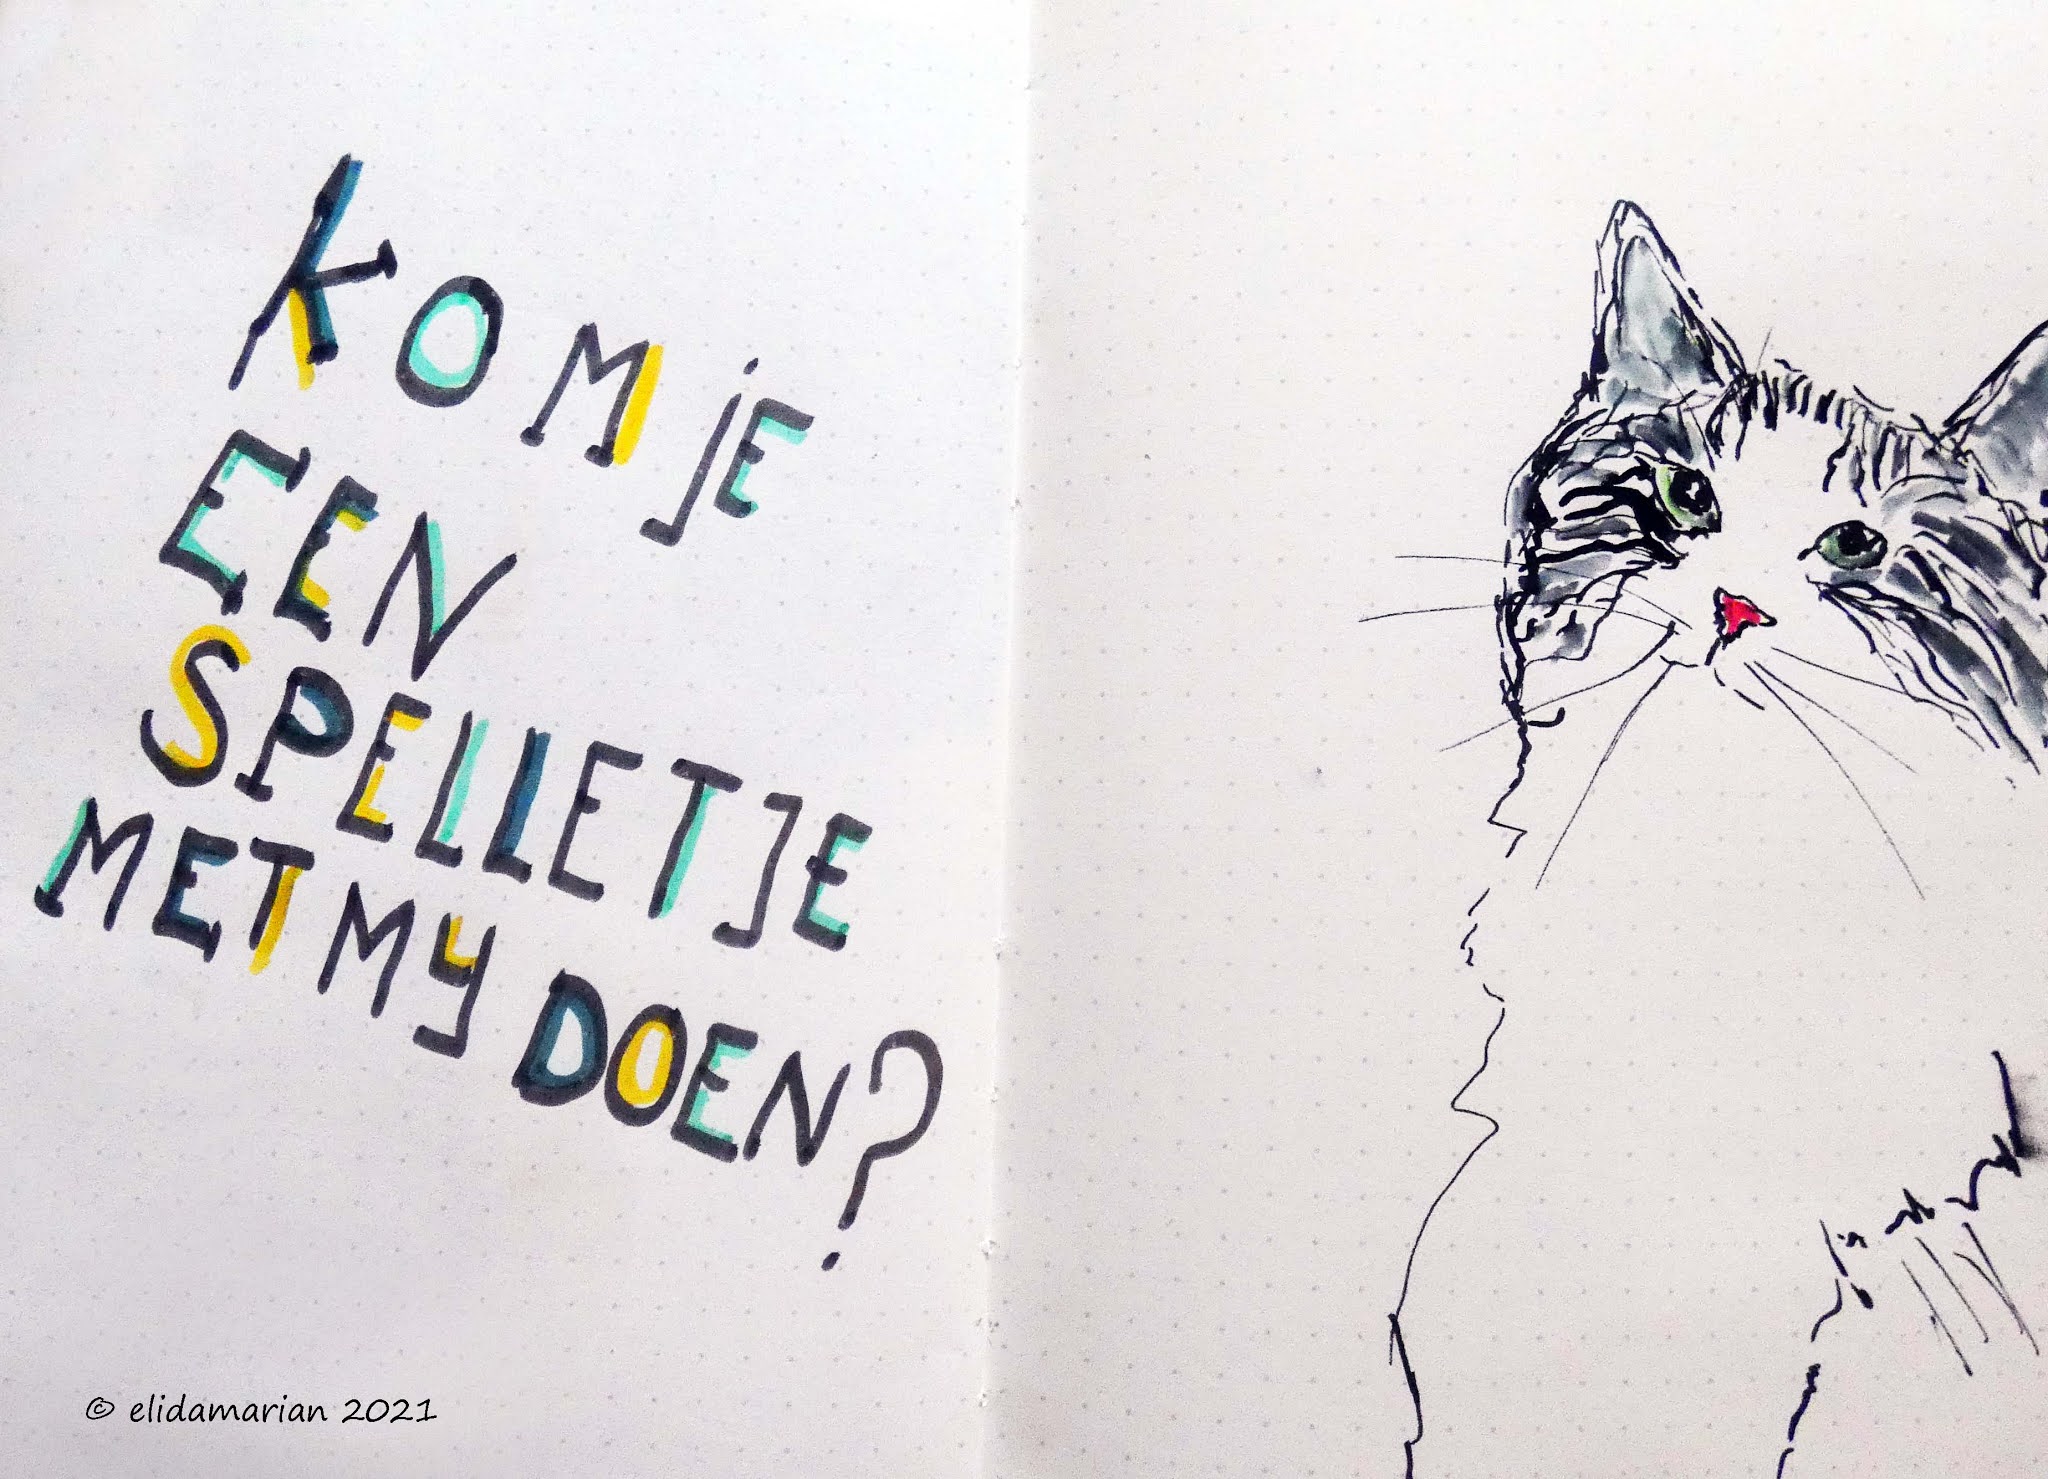 KOM jE
EEN
SPELLETJE
MET MY DOEN?
© elidamarian 2021